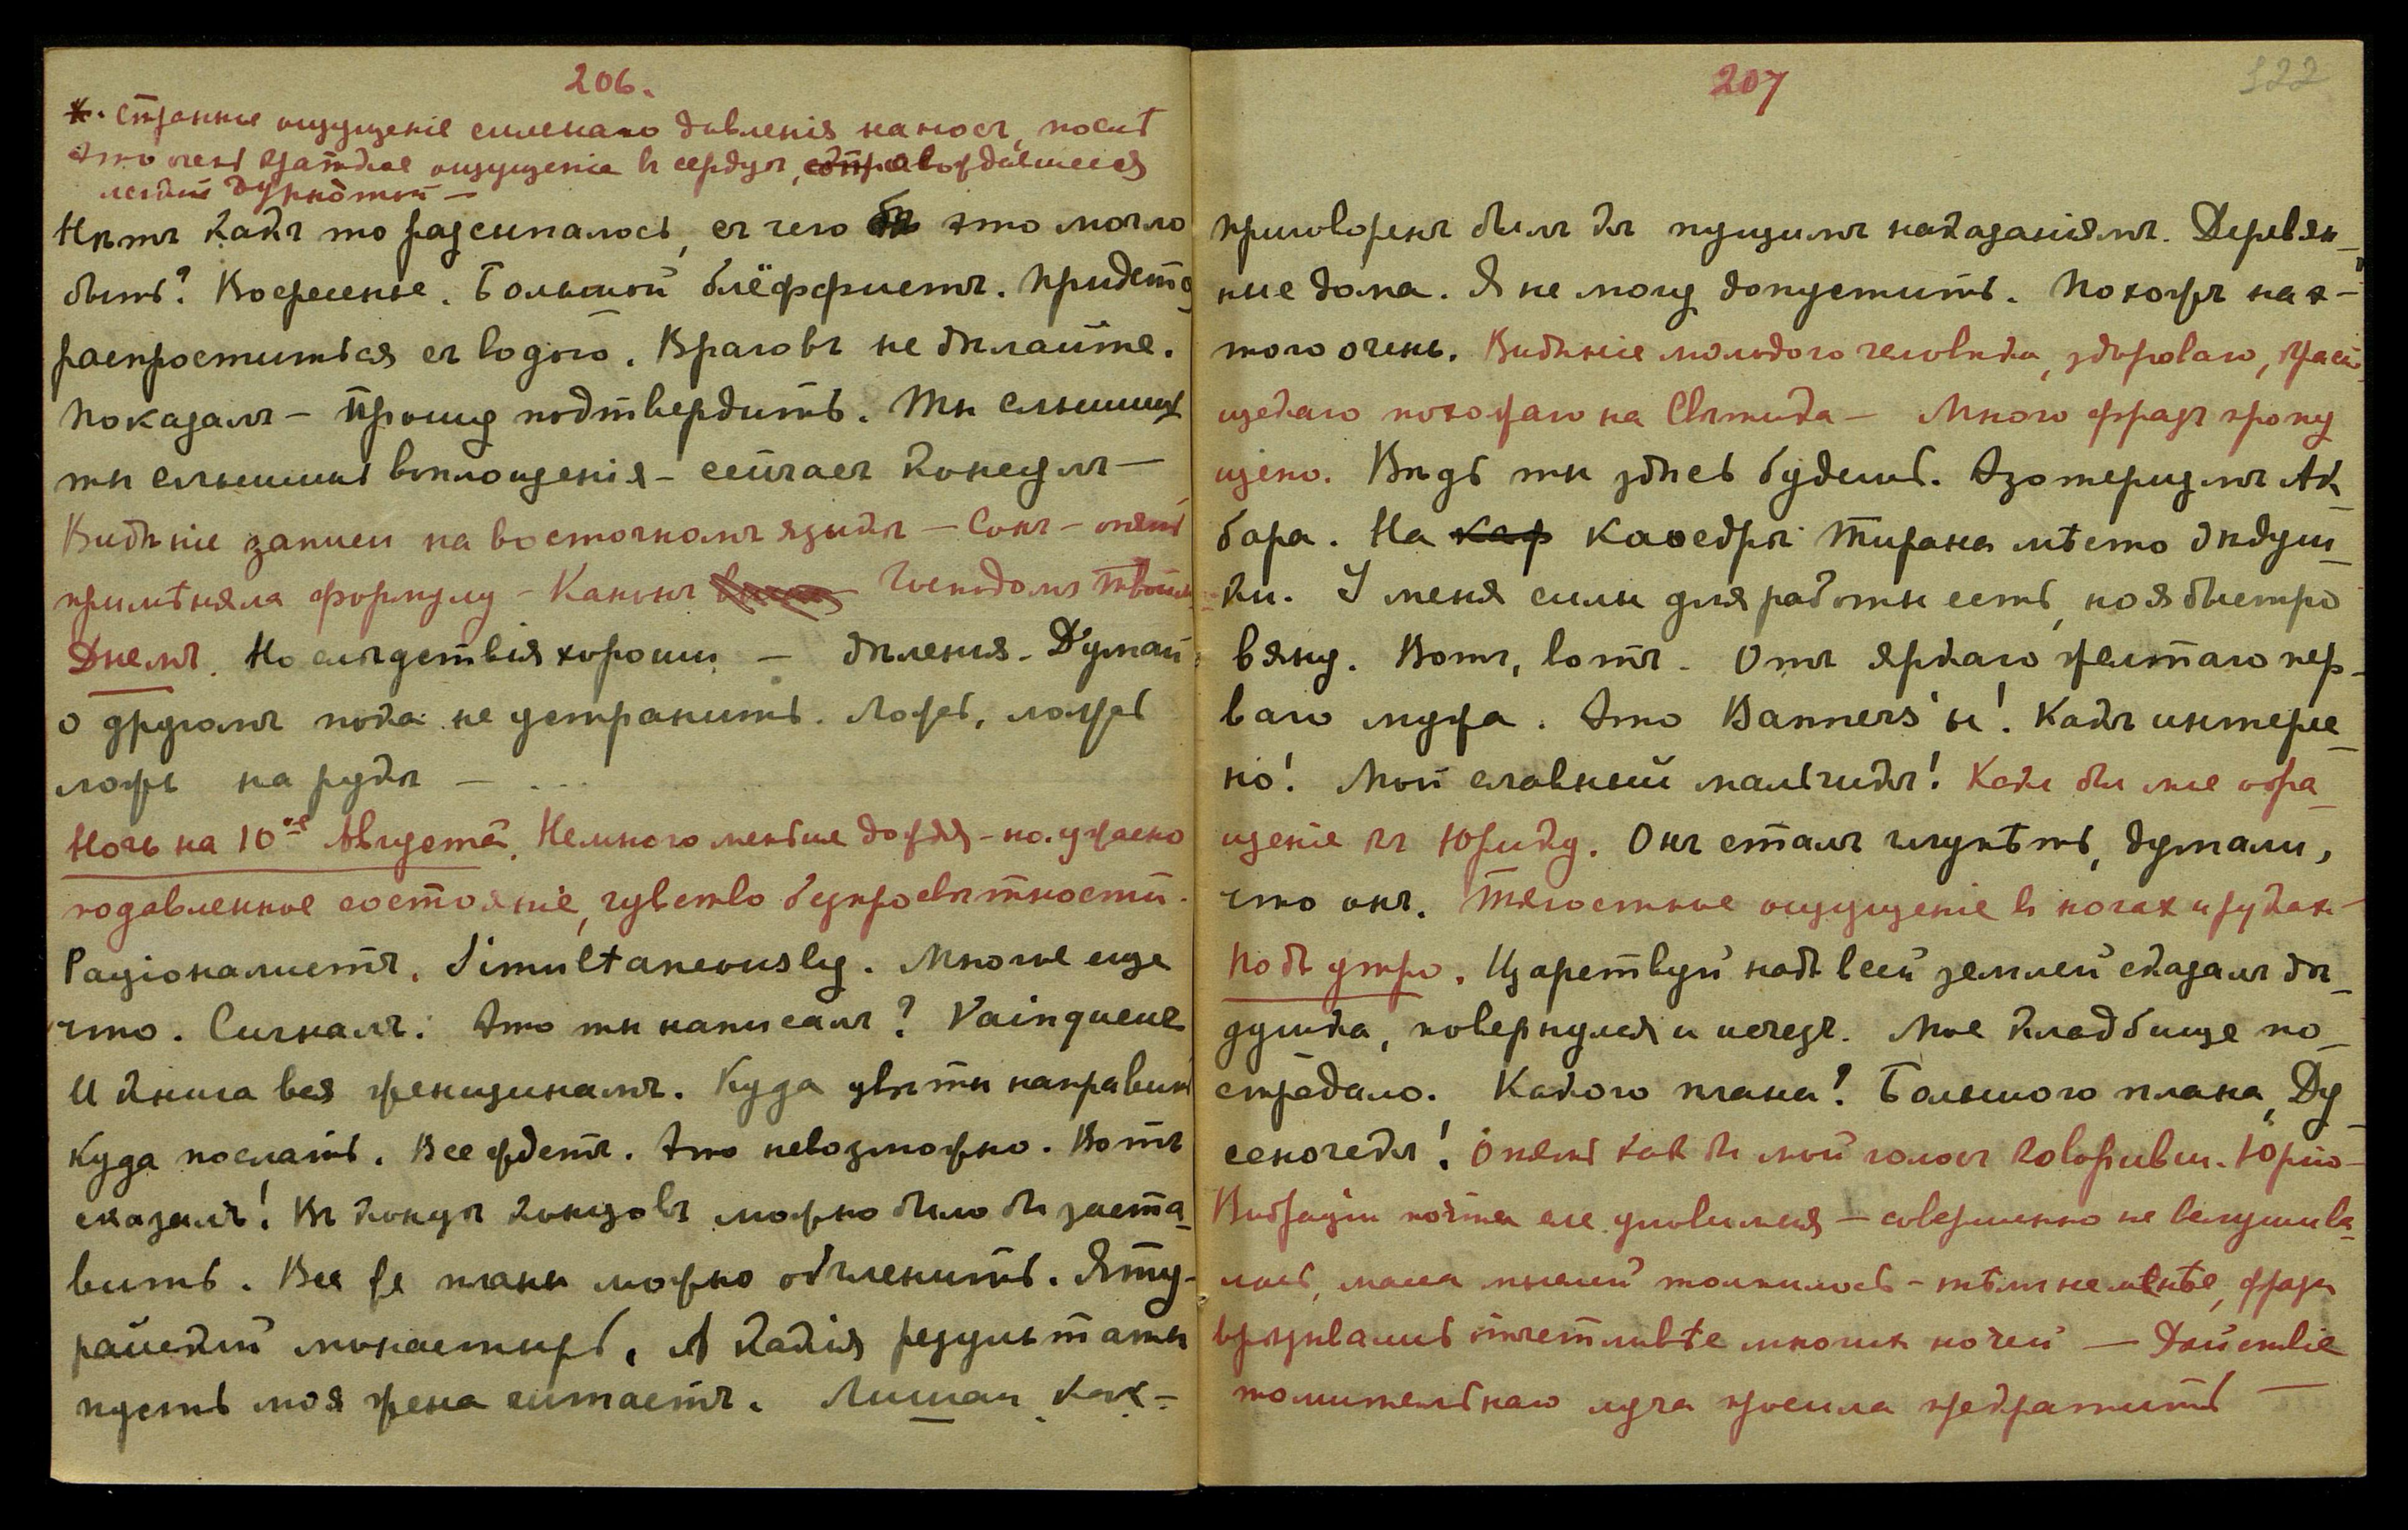 206.
*. Странное ощущеніе сильнаго давленія на носъ, послѣ
этого очень краткое ощущеніе въ сердцѣ, сопровождавшееся
легкой дурнотой —
Нѣтъ какъ то разсыпалось, съ чего бы это могло
быть? Воскресенье. Большой блёффистъ. Придется
распроститься съ водою. Враговъ не дѣлайте.
Показалъ — Прошу подтвердить. Ты слышишь
ты слышишь воплощенія — сейчасъ концомъ —
Видѣніе записи на восточномъ языкѣ — Сонъ — опять
примѣняла формулу — Канонъ Господомъ Твоимъ
Днемъ. Но слѣдствія хороши — дѣленія. Думай
о другомъ пока не устранить. Ложь, ложь
ложь на рукѣ — ...
Ночь на 10ое Августа. Немного меньше дождя — но ужасно
подавленное состояніе, чувство безпросвѣтности.
Раціоналистъ. Simultaneously. Многое еще
что. Сигналъ. Это ты написалъ? Vainqueur
И книга вся женщинамъ. Куда цвѣты направить
Куда послать. Все ждетъ. Это невозможно. Вотъ
сказалъ! Въ концѣ концовъ можно было бы заста-
вить. Все же планы можно объяснить. Яту-
райскій монастырь. А какія результаты
пусть моя жена считаетъ. Лишай как-
207
122
приговоренъ былъ къ пущимъ наказаніямъ. Деревян-
ные дома. Я не могу допустить. Похожъ на э-
того очень. Видѣніе молодого человѣка, здороваго,
щекаго похожаго на Святика — Много фразъ пропу
щено. Вѣдь ты здѣсь будешь. Эзотеризмъ Ак-
бара. На каф каѳедрѣ Тирана мѣсто дѣдуш-
ки. У меня силы для работы есть, но я быстро
вяну. Вотъ, вотъ. Отъ яркаго желтаго пер-
ваго мужа. Это Banners'ы! Какъ интерес-
но! Мой славный мальчикъ! Какъ бы мое обра-
щеніе къ Юрику. Онъ сталъ глупѣть, думали,
что онъ. Тягостное ощущеніе въ ногахъ и рукахъ
Подъ утро. Царствуй надъ всей землей сказалъ дѣ-
душка, повернулся и исчезъ. Мое кладбище по-
страдало. Какого плана? Большого плана, Ду
сеночекъ! Опять какъ бы мой голосъ говорившій. Юрію —
Вибраціи почти еле уловимыя — совершенно не вслушива-
лась, масса мыслей толпилось — тѣмъ не менѣе, фразы
врѣзывались отчетливѣе многихъ ночей — Дѣйствіе
томительнаго луча просила прекратить —